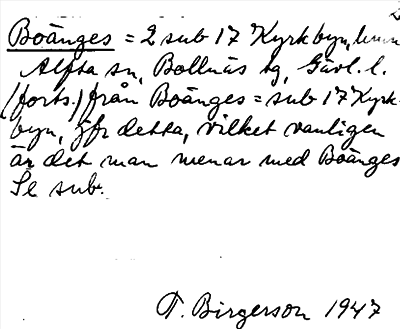 Boänges = 2 sub 17 Kyrkbyn,
Alfta sn, Bollnäs tg, Gävl. l.
(forts.) från Boänges = sub 17 Kyrk-
byn, jfr detta, vilket vanligen
är det man menar med Boänges
Se sub.
T. Birgerson 1947